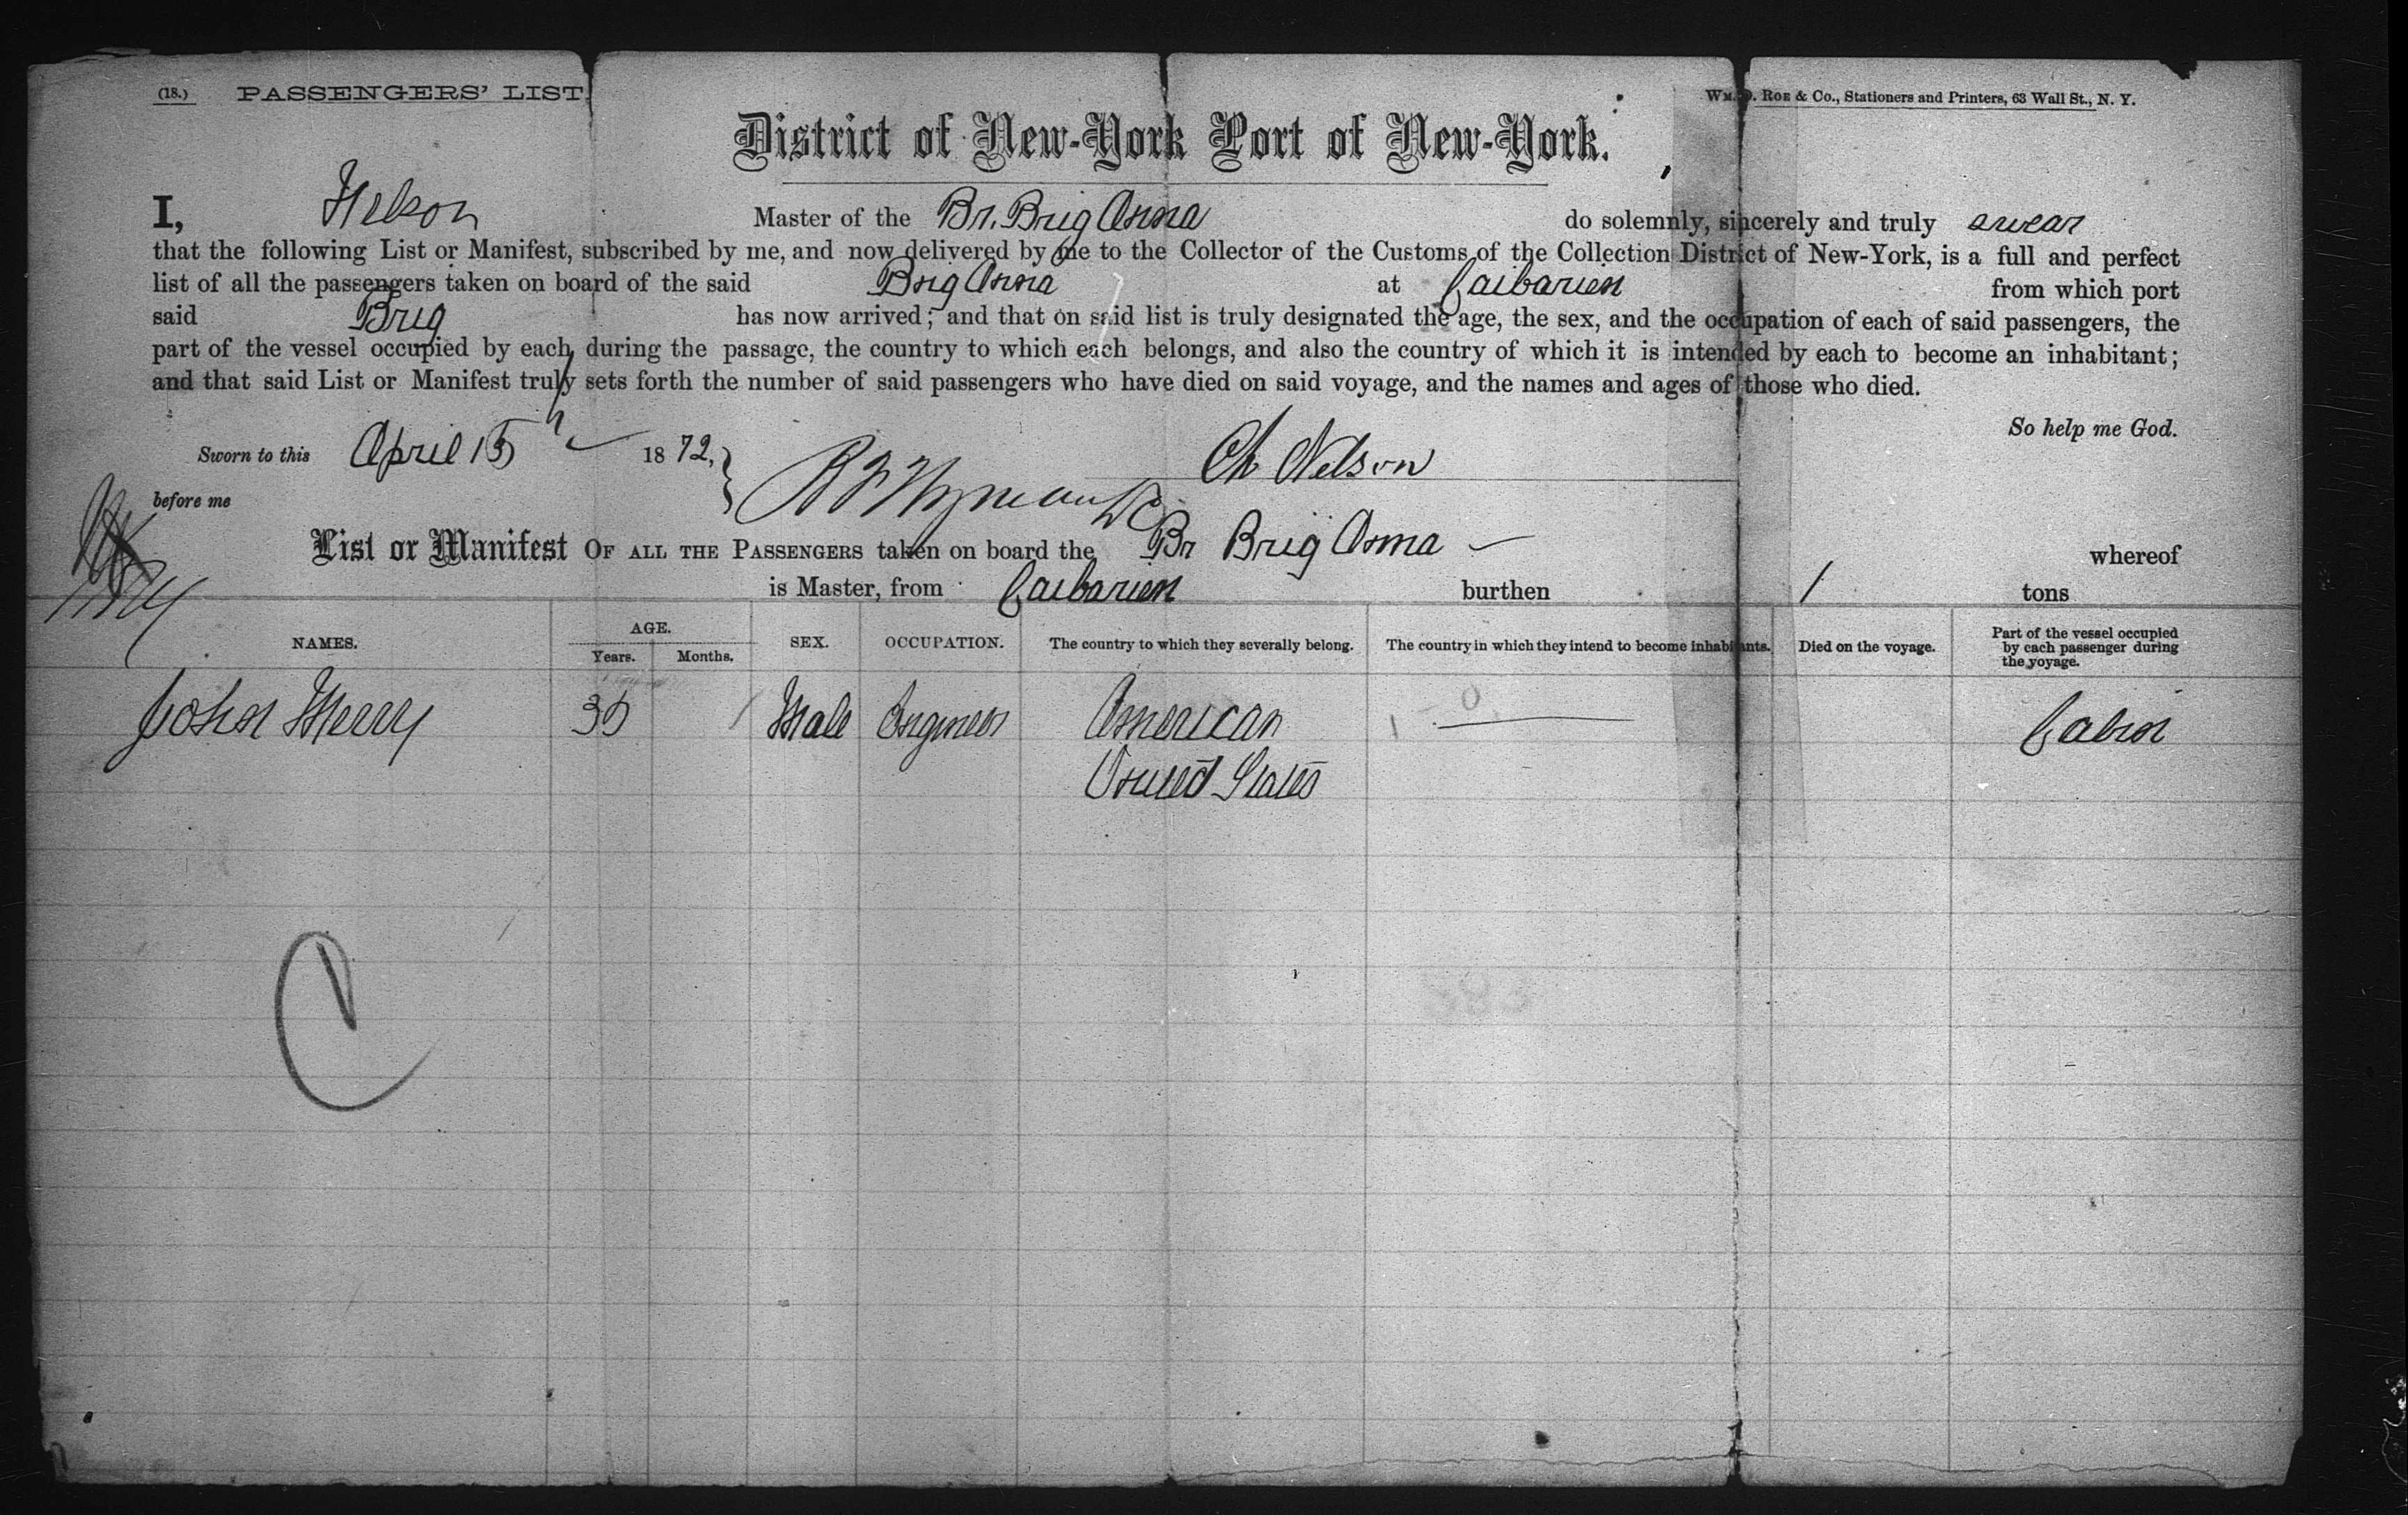 (18.) PASSENGERS' LIST.
WM. D. ROE & Co., Stationers and Printers, 63 Wall St., N. Y.
District of New-York Port of New-York.
I, Nelson Master of the Br. Brig Anna do solemnly, sincerely and truly swear
that the following List or Manifest, subscribed by me, and now delivered by me to the Collector of the Customs of the Collection District of New-York, is a full and perfect
list of all the passengers taken on board of the said Brig Anna at Caibarien from which port
said Brig has now arrived; and that on said list is truly designated the age, the sex, and the occupation of each of said passengers, the
part of the vessel occupied by each during the passage, the country to which each belongs, and also the country of which it is intended by each to become an inhabitant;
and that said List or Manifest truly sets forth the number of said passengers who have died on said voyage, and the names and ages of those who died.
So help me God.
Sworn to this April 15 1872, Ch Nelson
before me
List or Manifest OF ALL THE PASSENGERS taken on board the Br Brig Anna whereof
is Master, from Caibarien burthen tons
NAMES. AGE. SEX. OCCUPATION. The country to which they severally belong. The country in which they intend to become inhabitants. Died on the voyage. Part of the vessel occupied by each passenger during the voyage.
Years. Months.
John Merry 35 Male Engineer American Cabin
United States
C